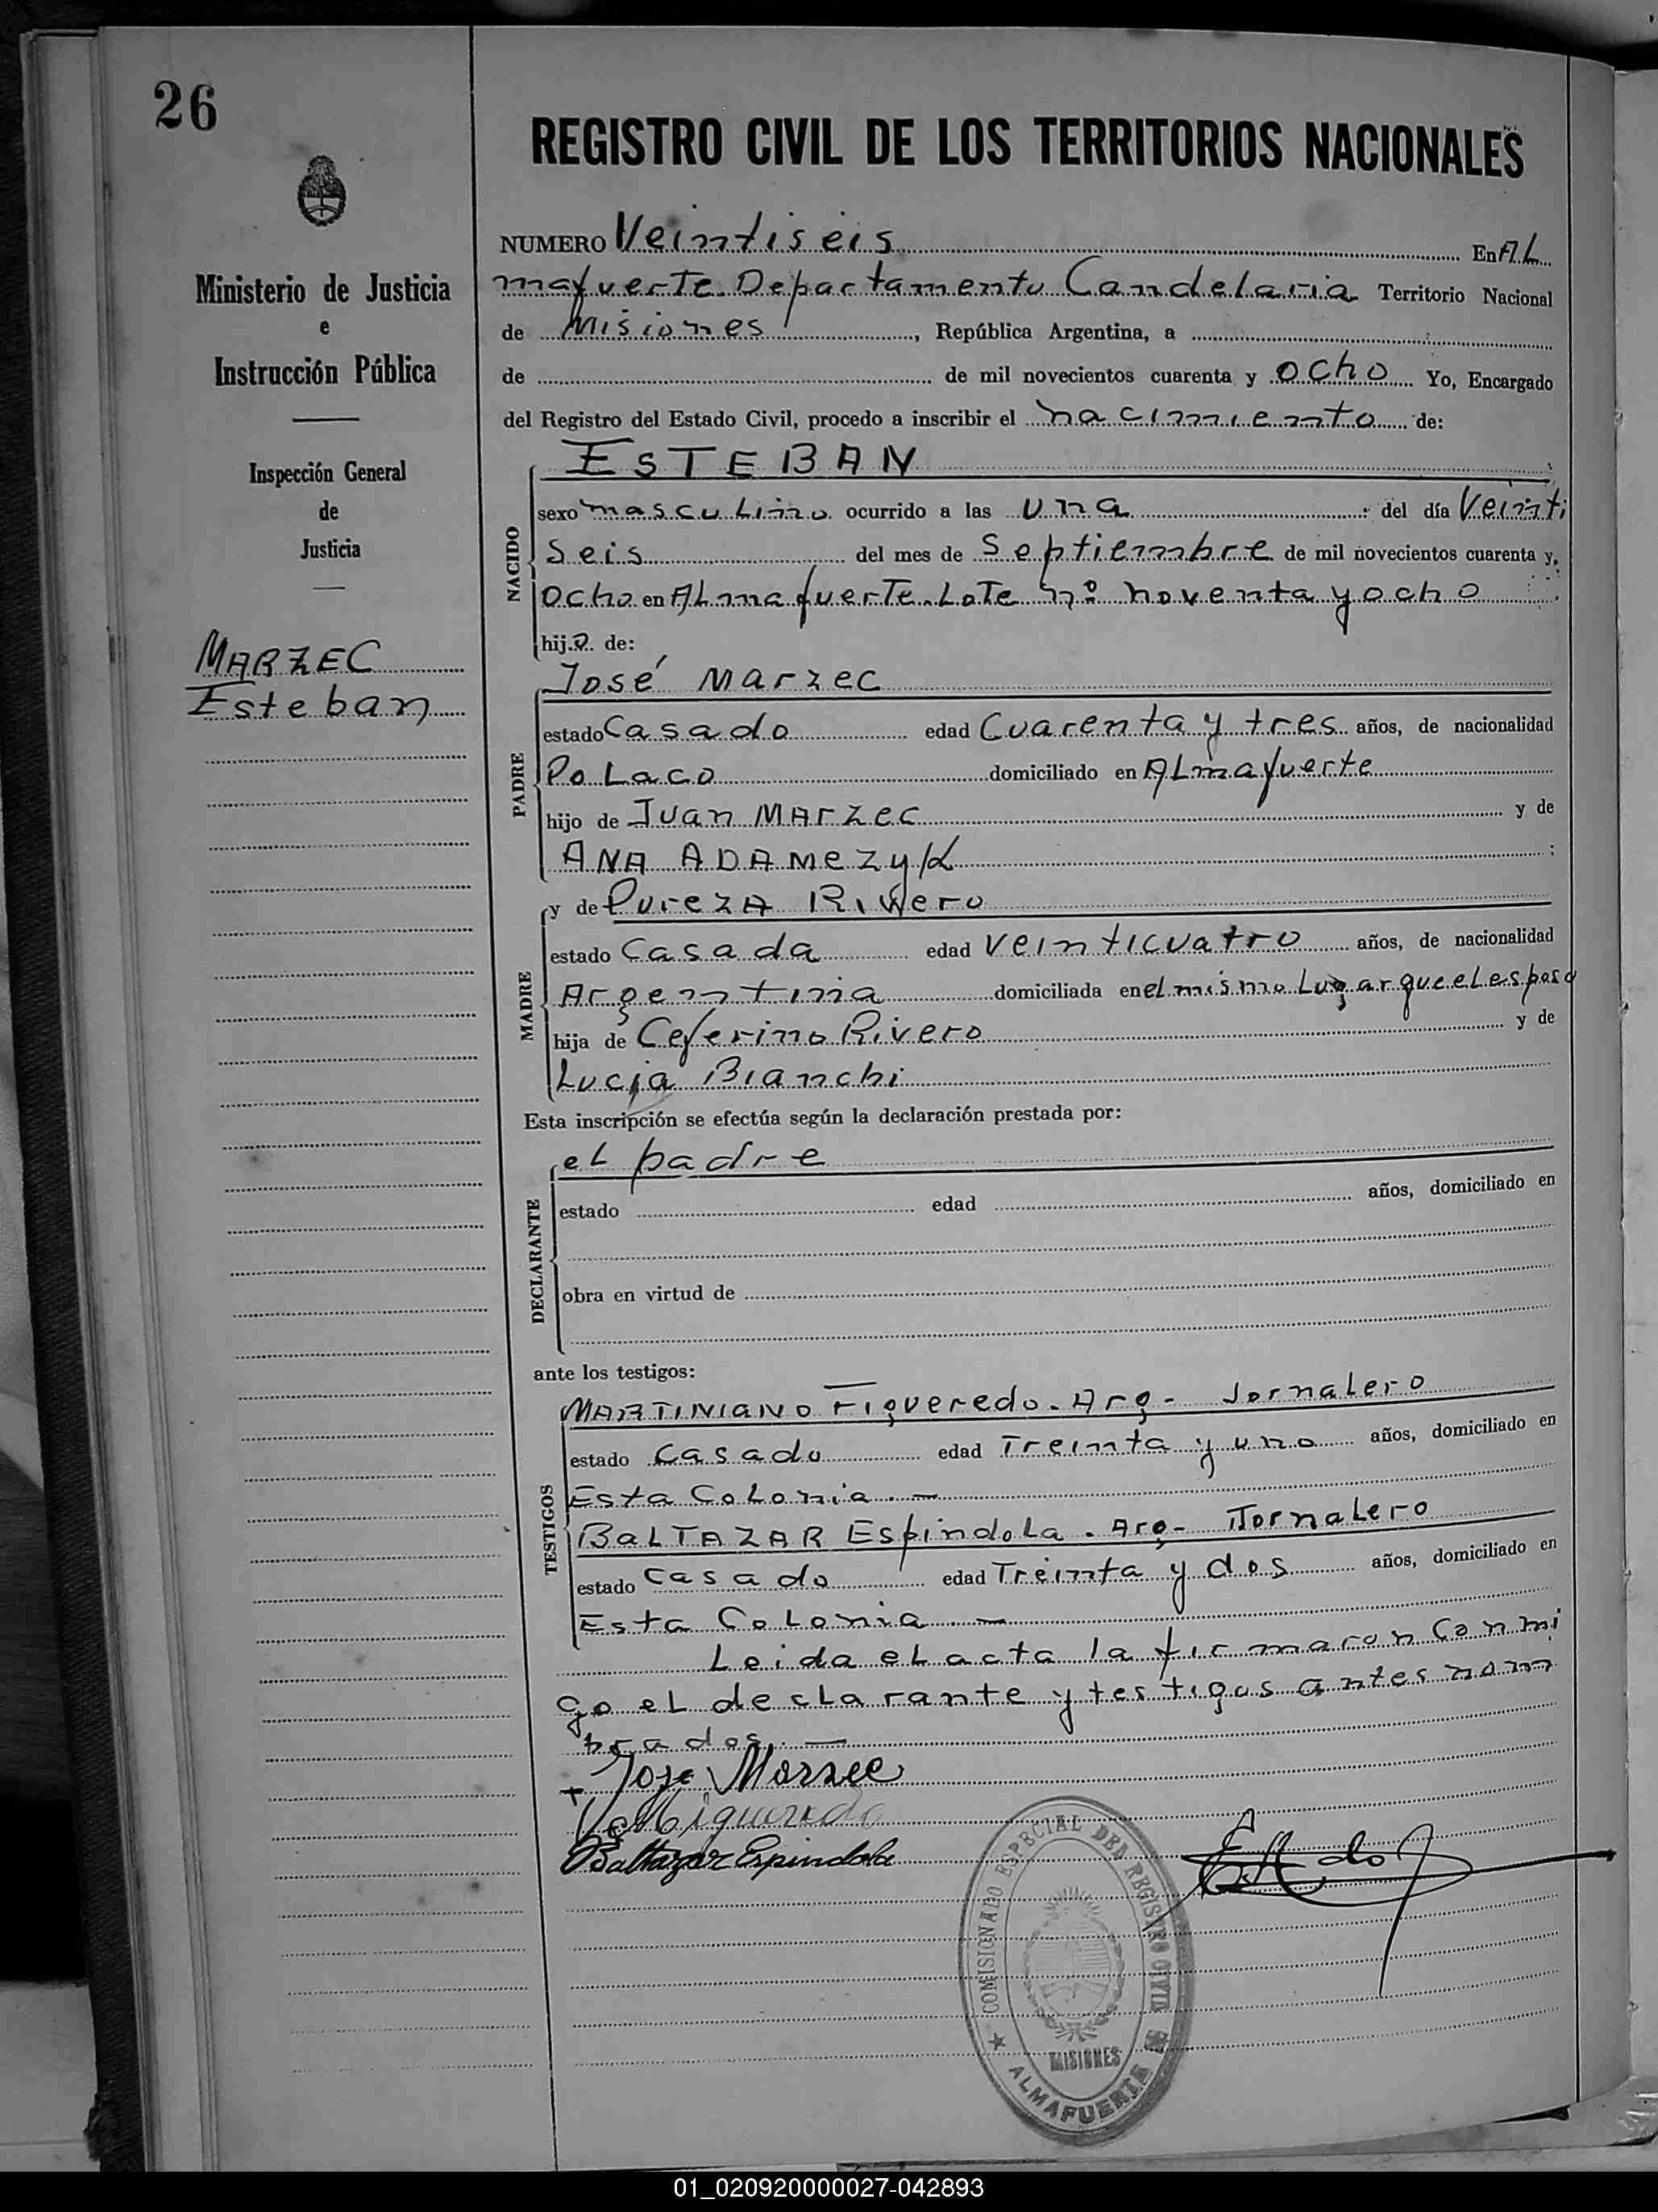 26
REGISTRO CIVIL DE LOS TERRITORIOS NACIONALES
Ministerio de Justicia
e
Instrucción Pública
Inspección General
de
Justicia
MARZEC
Esteban
NUMERO Veintiseis En AL
mafuerte Departamento Candelaria Territorio Nacional
de Misiones, República Argentina, a
de de mil novecientos cuarenta y ocho Yo, Encargado
del Registro del Estado Civil, procedo a inscribir el nacimiento de:
NACIDO
ESTEBAN
sexo masculino ocurrido a las una del día Veinti
seis del mes de Septiembre de mil novecientos cuarenta y
ocho en ALmafuerte Lote nº noventa y ocho
hijo de:
PADRE
José Marzec
estado Casado edad Cuarenta y tres años, de nacionalidad
PoLaco domiciliado en ALmafuerte
hijo de Juan MArzec y de
ANA ADAMezyk
MADRE
y de PurezA Rivero
estado Casada edad veinticuatro años, de nacionalidad
Argentina domiciliada en el mismo Lugar que el esposo
hija de Ceferino Rivero y de
Lucia Bianchi
Esta inscripción se efectúa según la declaración prestada por:
DECLARANTE
el padre
estado edad años, domiciliado en
obra en virtud de
ante los testigos:
TESTIGOS
MARTINIANO Figueredo. Arg- Jornalero
estado Casado edad Treinta y uno años, domiciliado en
Esta Colonia.—
BaLTAZAR Espindola. Arg- Jornalero
estado Casado edad Treinta y dos años, domiciliado en
Esta Colonia —
Leida el acta la firmaron Conmi
go el declarante y testigos antes nom
brados.—
+ Jose Marzec
Figueredo
Baltazar Espindola
COMISIONADO ESPECIAL DEL REGISTRO CIVIL
MISIONES
ALMAFUERTE
01_020920000027-042893